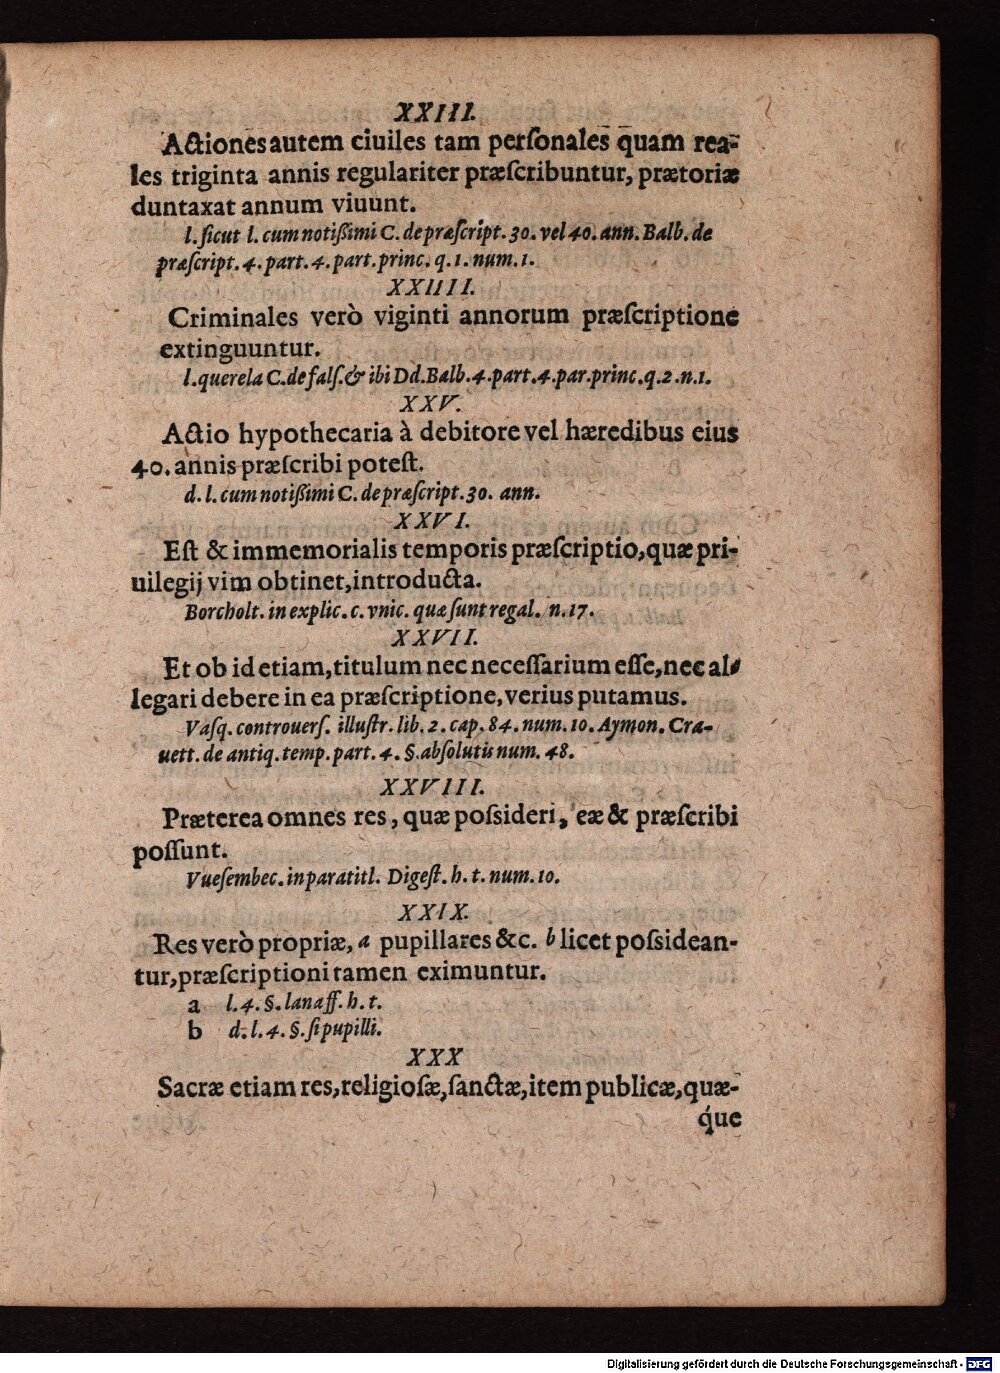 XXIII.
Actiones autem ciuiles tam perſonales quam rea-
les triginta annis regulariter præſcribuntur, prætoriæ
duntaxat annum viuunt.
l. ſicut l. cum notißimi C. de præſcript. 30. vel 40. ann. Balb. de
præſcript. 4. part. 4. part. princ. q. 1. num. 1.
XXIIII.
Criminales verò viginti annorum præſcriptione
extinguuntur.
l. querela C. de falſ. & ibi Dd. Balb. 4. part. 4. par. princ. q. 2. n. 1.
XXV.
Actio hypothecaria à debitore vel hæredibus eius
40. annis præſcribi poteſt.
d. l. cum notißimi C. de præſcript. 30. ann.
XXVI.
Eſt & immemorialis temporis præſcriptio, quæ pri-
uilegij vim obtinet, introducta.
Borcholt. in explic. c. vnic. quæ ſunt regal. n. 17.
XXVII.
Et ob id etiam, titulum nec neceſſarium eſſe, nec al-
legari debere in ea præſcriptione, verius putamus.
Vaſq. controuerſ. illuſtr. lib. 2. cap. 84. num. 10. Aymon. Cra-
uett. de antiq. temp. part. 4. §. abſolutis num. 48.
XXVIII.
Præterea omnes res, quæ poſsideri, eæ & præſcribi
poſſunt.
Vueſembec. in paratitl. Digeſt. h. t. num. 10.
XXIX.
Res verò propriæ, a pupillares &c. b licet poſsidean-
tur, præſcriptioni tamen eximuntur.
a l. 4. §. lanaff. h. t.
b d. l. 4. §. ſi pupilli.
XXX
Sacræ etiam res, religioſæ, ſanctæ, item publicæ, quæ-
q́ue
Digitalisierung gefördert durch die Deutsche Forschungsgemeinschaft - DFG